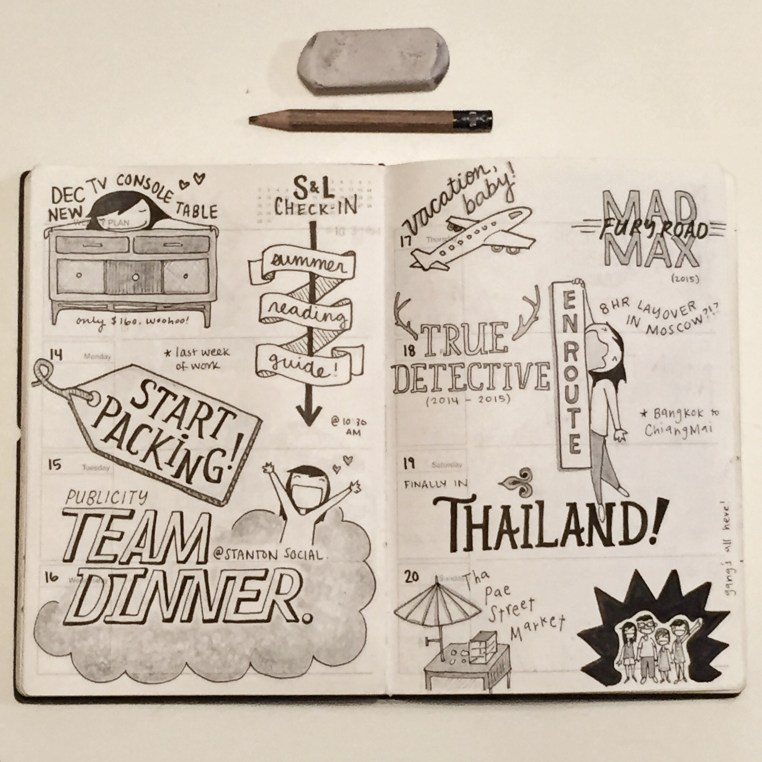 DEC
NEW
TV CONSOLE
TABLE
PLAN
only $160. woohoo!
S&L
CHECK-IN
summer
reading
guide!
@ 10:30
AM
14 Monday
* last week
of work
START
PACKING!
15 Tuesday
PUBLICITY
TEAM
@STANTON SOCIAL.
16
DINNER.
vacation,
baby!
17 Thursday
MAD
FURY ROAD
MAX
(2015)
18
TRUE
DETECTIVE
(2014 - 2015)
EN ROUTE
8 HR LAYOVER
IN MOSCOW?!?
* BANGKOK to
CHIANGMAI
19 Saturday
FINALLY IN
THAILAND!
gang's all here!
20
Tha
Pae
Street
Market